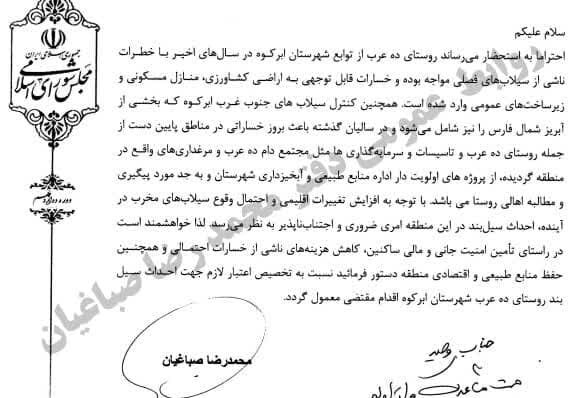 جمهوری اسلامی ایران
مجلس شورای اسلامی
سلام علیکم
احتراما به استحضار می‌رساند روستای ده عرب از توابع شهرستان ابرکوه در سال‌های اخیر با خطرات
ناشی از سیلاب‌های فصلی مواجه بوده و خسارات قابل توجهی به اراضی کشاورزی، منازل مسکونی و
زیرساخت‌های عمومی وارد شده است. همچنین کنترل سیلاب های جنوب غرب ابرکوه که بخشی از
آبریز شمال فارس را نیز شامل می‌شود و در سالیان گذشته باعث بروز خساراتی در مناطق پایین دست از
جمله روستای ده عرب و تاسیسات و سرمایه‌گذاری ها مثل مجتمع دام ده عرب و مرغداری‌های واقع در
منطقه گردیده، از پروژه های اولویت دار اداره منابع طبیعی و آبخیزداری شهرستان و به جد مورد پیگیری
و مطالبه اهالی روستا می باشد. با توجه به افزایش تغییرات اقلیمی و احتمال وقوع سیلاب‌های مخرب در
آینده، احداث سیل‌بند در این منطقه امری ضروری و اجتناب‌ناپذیر به نظر می‌رسد. لذا خواهشمند است
در راستای تأمین امنیت جانی و مالی ساکنین، کاهش هزینه‌های ناشی از خسارات احتمالی و همچنین
حفظ منابع طبیعی و اقتصادی منطقه دستور فرمائید نسبت به تخصیص اعتبار لازم جهت احداث سیل
بند روستای ده عرب شهرستان ابرکوه اقدام مقتضی معمول گردد.
محمدرضا صباغیان
روابط عمومی دفتر محمدرضا صباغیان